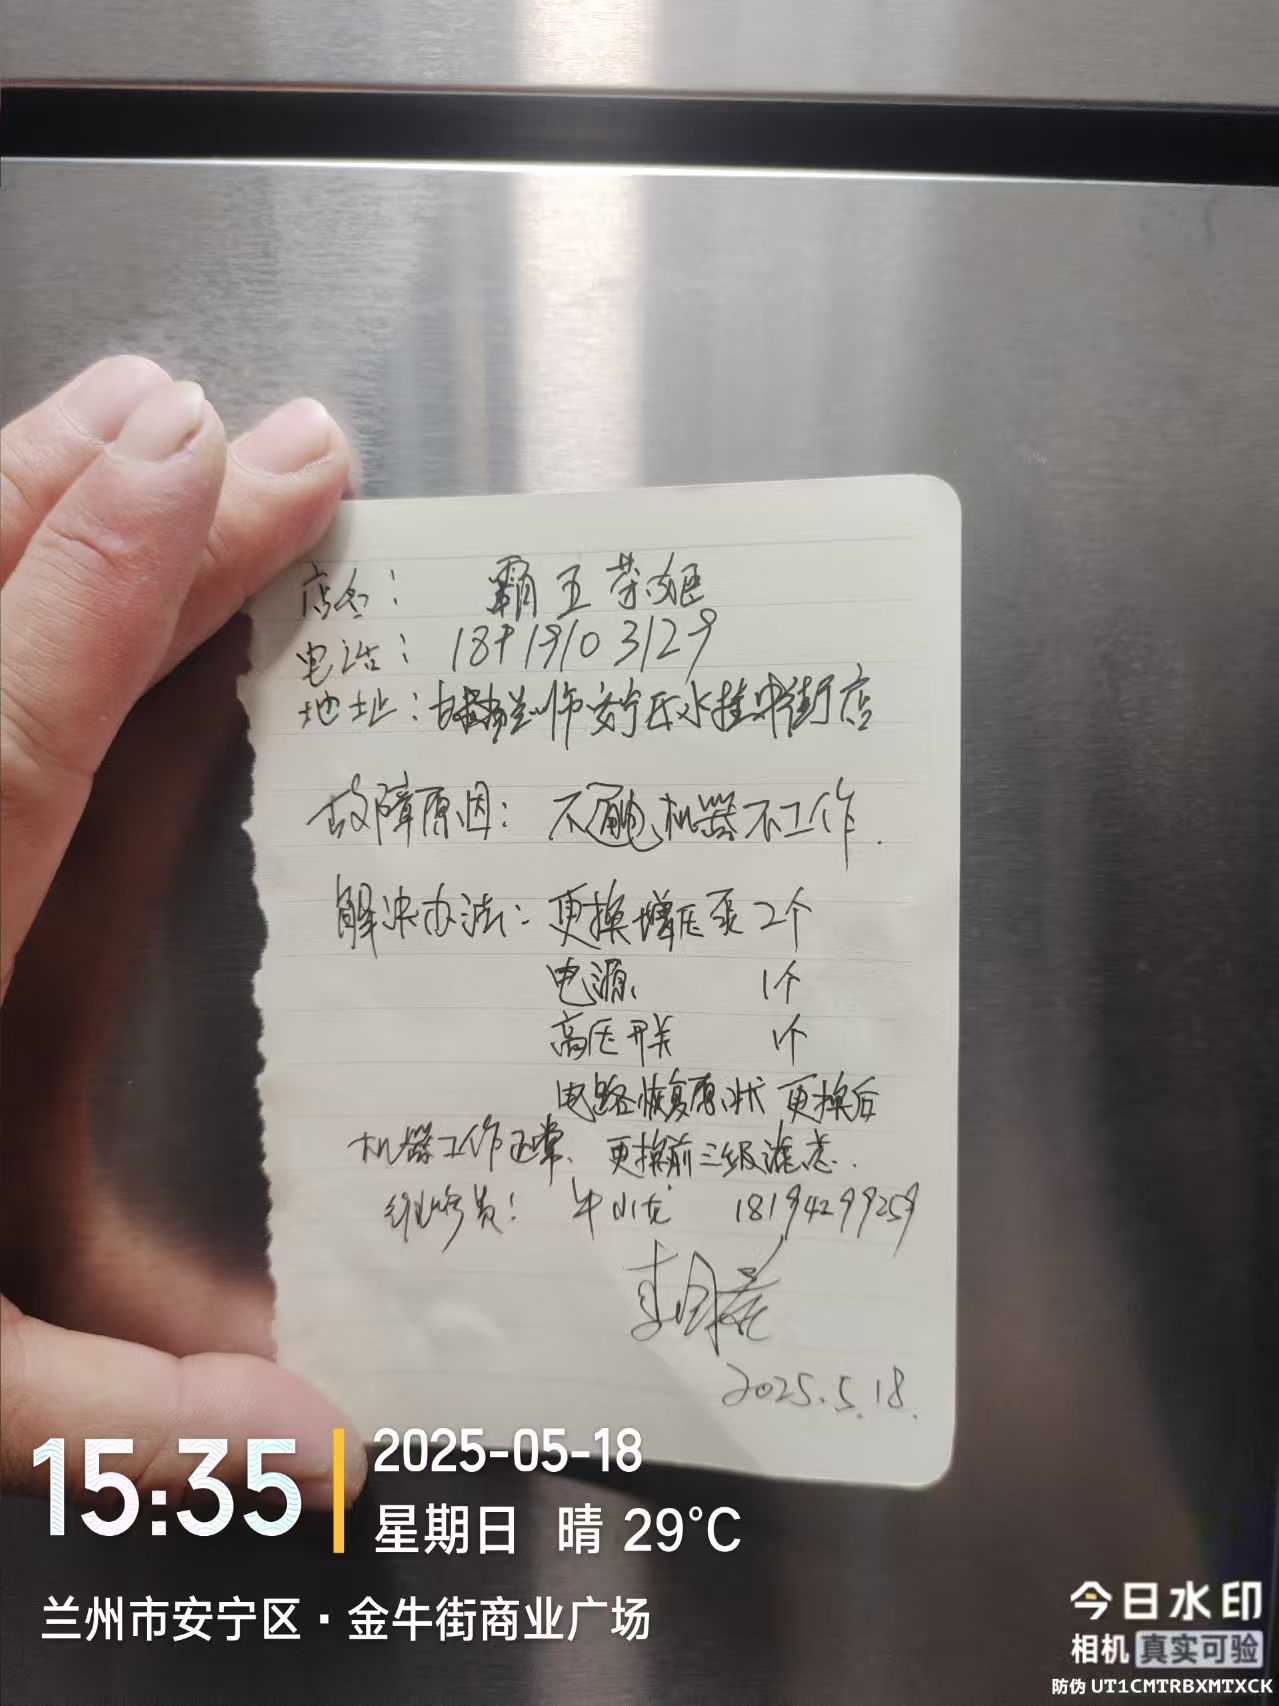 店名: 霸王茶姬
电话: 18919103129
地址: 兰州市安宁区水挂中街店
故障原因: 不通电、机器不工作.
解决办法: 更换增压泵 2个
电源 1个
高压开关 1个
电路恢复原状 更换后
机器工作正常、更换前三级滤芯.
维修员: 牛小龙 18194299259
2025.5.18.
15:35
2025-05-18
星期日 晴 29°C
兰州市安宁区·金牛街商业广场
今日水印
相机 真实可验
防伪 UT1CMTRBXMTXCK